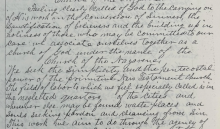 feeling clearly called of God to the carrying on
of His work in the conversion of sinners, the
sanctification of believers and the building up in
holiness of those who may be committed to our
care, we associate ourselves together as a
church of God under the name of the
Church of the Nazarene.
We seek the simplicity and the Pentecostal
power of the primitive New Testament Church.
The field of labor to which we feel especially called is in
the neglected quarters of the cities and
wherever else may be found waste places and
souls seeking pardon and cleansing from sin.
This work we aim to do through the agency of